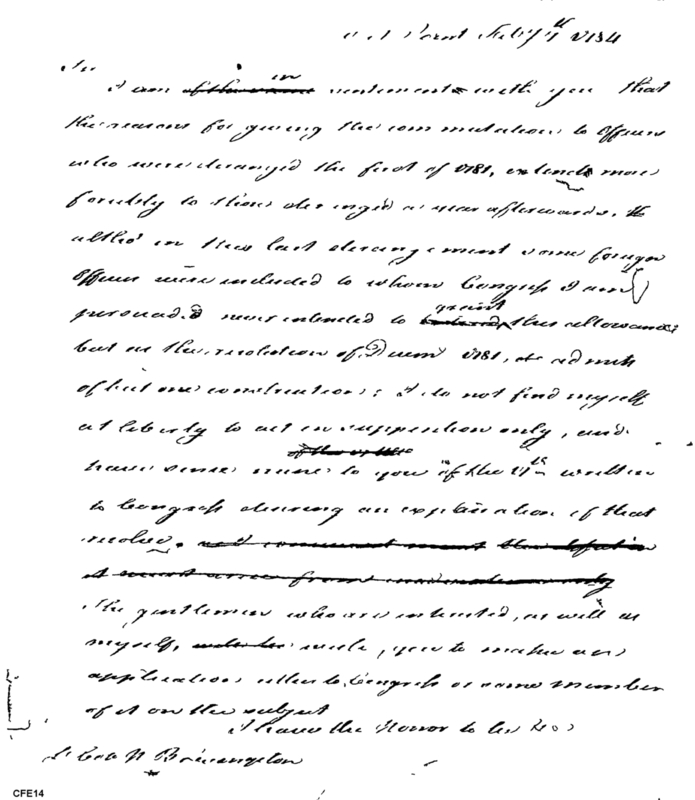 Point Feby 1784
Sir
in
I am sentiment with you that
the reasons for giving the commutation to Officers
who were deranged the first of 1781, extends more
forcibly to those deranged a year afterwards.
altho' in this last derangement some foreign
Officers were included to whom Congress I am
persuaded never intended to grant this allowance
but as the resolution of 1781, admits
of but one construction; I do not find myself
at liberty to act on supposition only, and
have since mine to you of the written
to Congress desiring an explanation of that
resolve.
The gentlemen who are interested, as well as
myself, wish, you to make an
application either to Congress or some member
of it on the subject
I have the Honor to be
CFE14